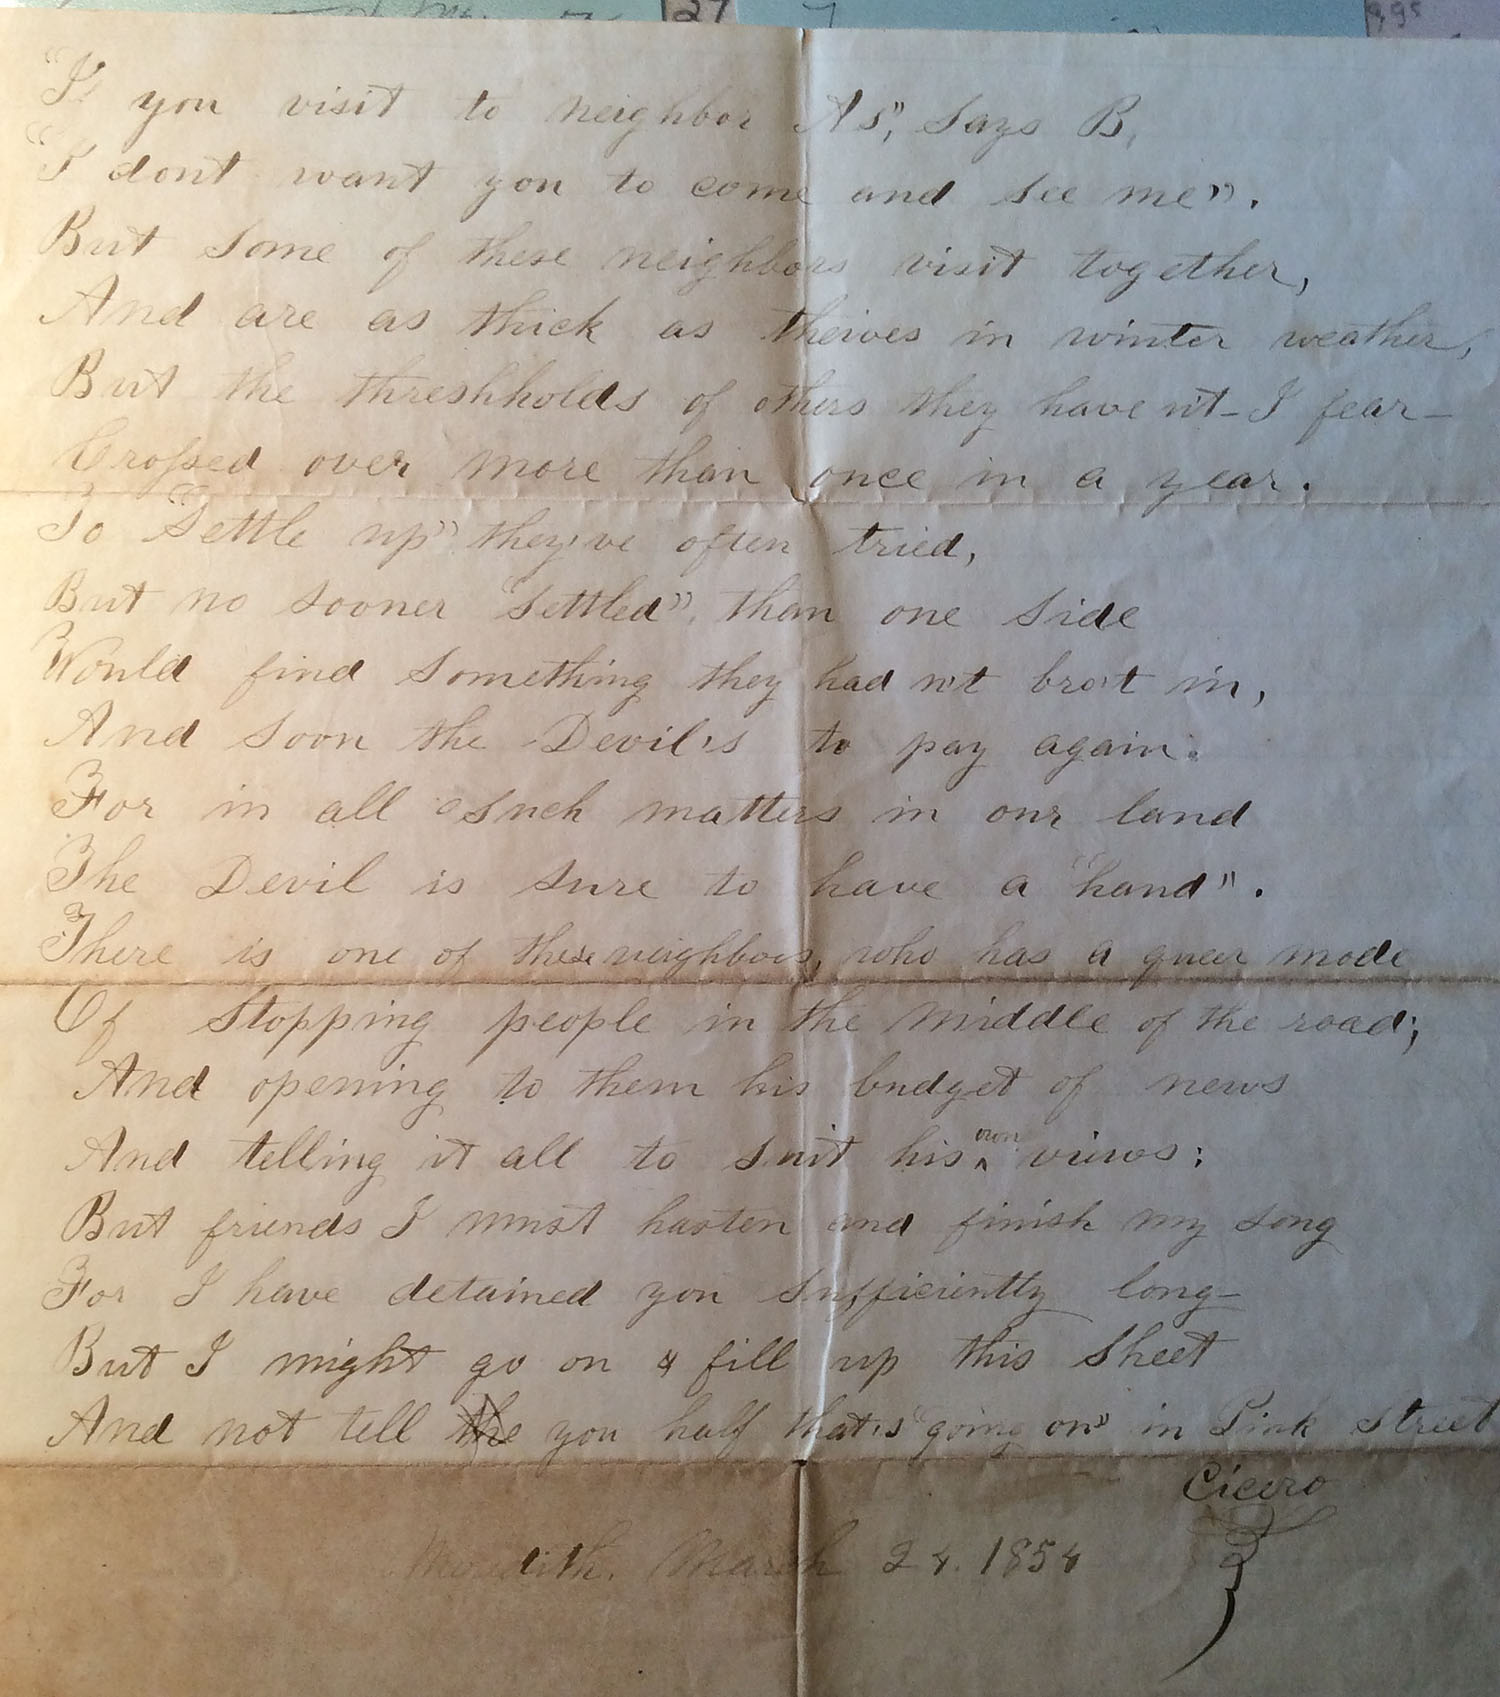 27
"If you visit to neighbor As", says B,
"I dont want you to come and see me".
But some of these neighbors visit together,
And are as thick as theives in winter weather,
But the threshholds of others they have n't - I fear -
Crossed over more than once in a year.
To "Settle up" they've often tried,
But no sooner "settled", than one side
Would find something they had n't bro't in,
And soon the Devil's to pay again.
For in all such matters in our land
The Devil is sure to have a "hand".
There is one of these neighbors, who has a queer mode
Of stopping people in the middle of the road;
And opening to them his budget of news
And telling it all to suit his own views;
But friends I must hasten and finish my song
For I have detained you sufficiently long -
But I might go on & fill up this sheet
And not tell the you half that's "going on" in Pink Street
Cicero
Meredith. March 24. 1854